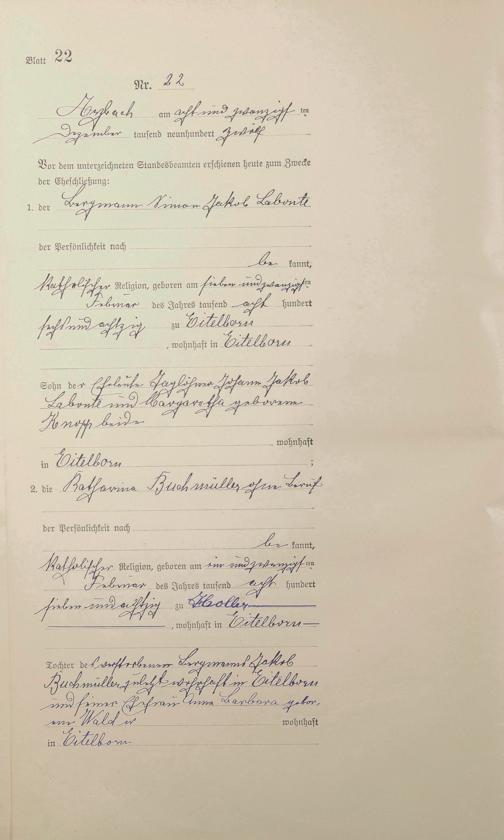 Blatt 22
Nr. 22
Arzbach am acht und zwanzigsten
Dezember tausend neunhundert zwölf
Vor dem unterzeichneten Standesbeamten erschienen heute zum Zwecke
der Eheschließung:
1. der Bergmann Simon Jakob Labonte
der Persönlichkeit nach
be kannt,
katholischer Religion, geboren am sieben und zwanzigsten
Februar des Jahres tausend acht hundert
sechs und achtzig zu Eitelborn
, wohnhaft in Eitelborn
Sohn der Eheleute Taglöhner Johann Jakob
Labonte und Margaretha geborene
Knopp beide
wohnhaft
in Eitelborn ;
2. die Katharina Buchmüller ohne Beruf
der Persönlichkeit nach
be kannt,
katholischer Religion, geboren am ein und zwanzigsten
Februar des Jahres tausend acht hundert
sieben und achtzig zu Holler
, wohnhaft in Eitelborn
Tochter des verstorbenen Bergmanns Jakob
Buchmüller zuletzt wohnhaft in Eitelborn
und seiner Ehefrau Anna Barbara gebor.
ene wohnhaft
in Eitelborn